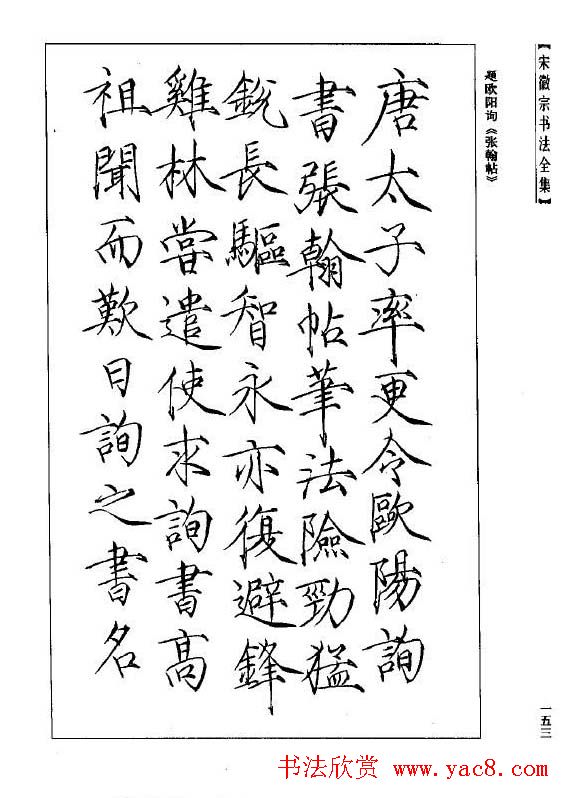 【宋徽宗书法全集】
题欧阳询《张翰帖》
唐太子率更令歐陽詢
書張翰帖筆法險勁猛
銳長驅智永亦復避鋒
雞林嘗遣使求詢書高
祖聞而歎曰詢之書名
一五三
书法欣赏 www.yac8.com